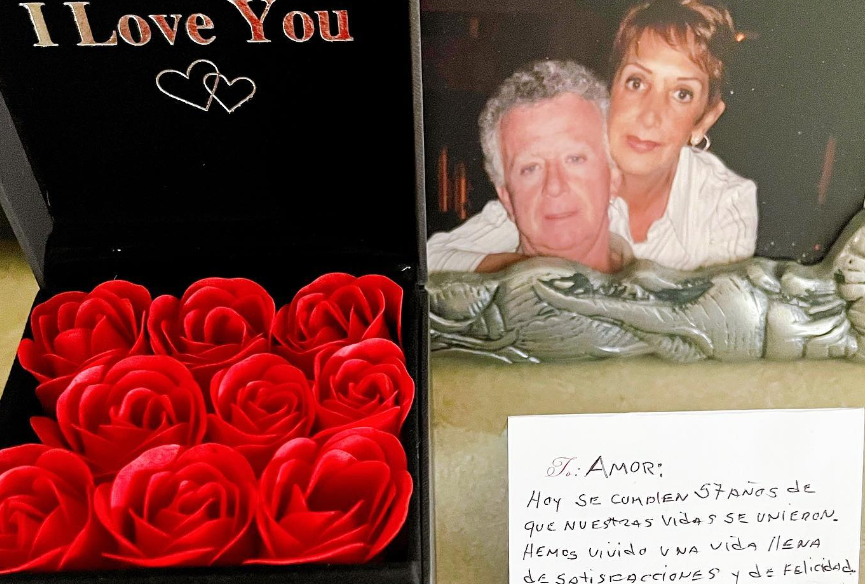 I Love You
To: AMOR:
HOY SE CUMPLEN 57 AÑOS de
QUE NUESTRAS VIDAS SE UNIERON.
HEMOS VIVIDO UNA VIDA LLENA
DE SATISFACCIONES Y DE FELICIDAD